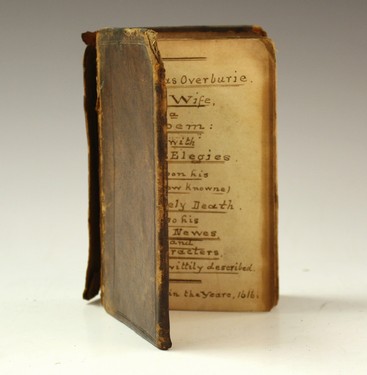 as Overburie.
Wife,
a
oem:
with
Elegies
pon his
ow knowne)
ely Death.
so his
Newes
and
racters,
wittily described.
in the Years, 1616.